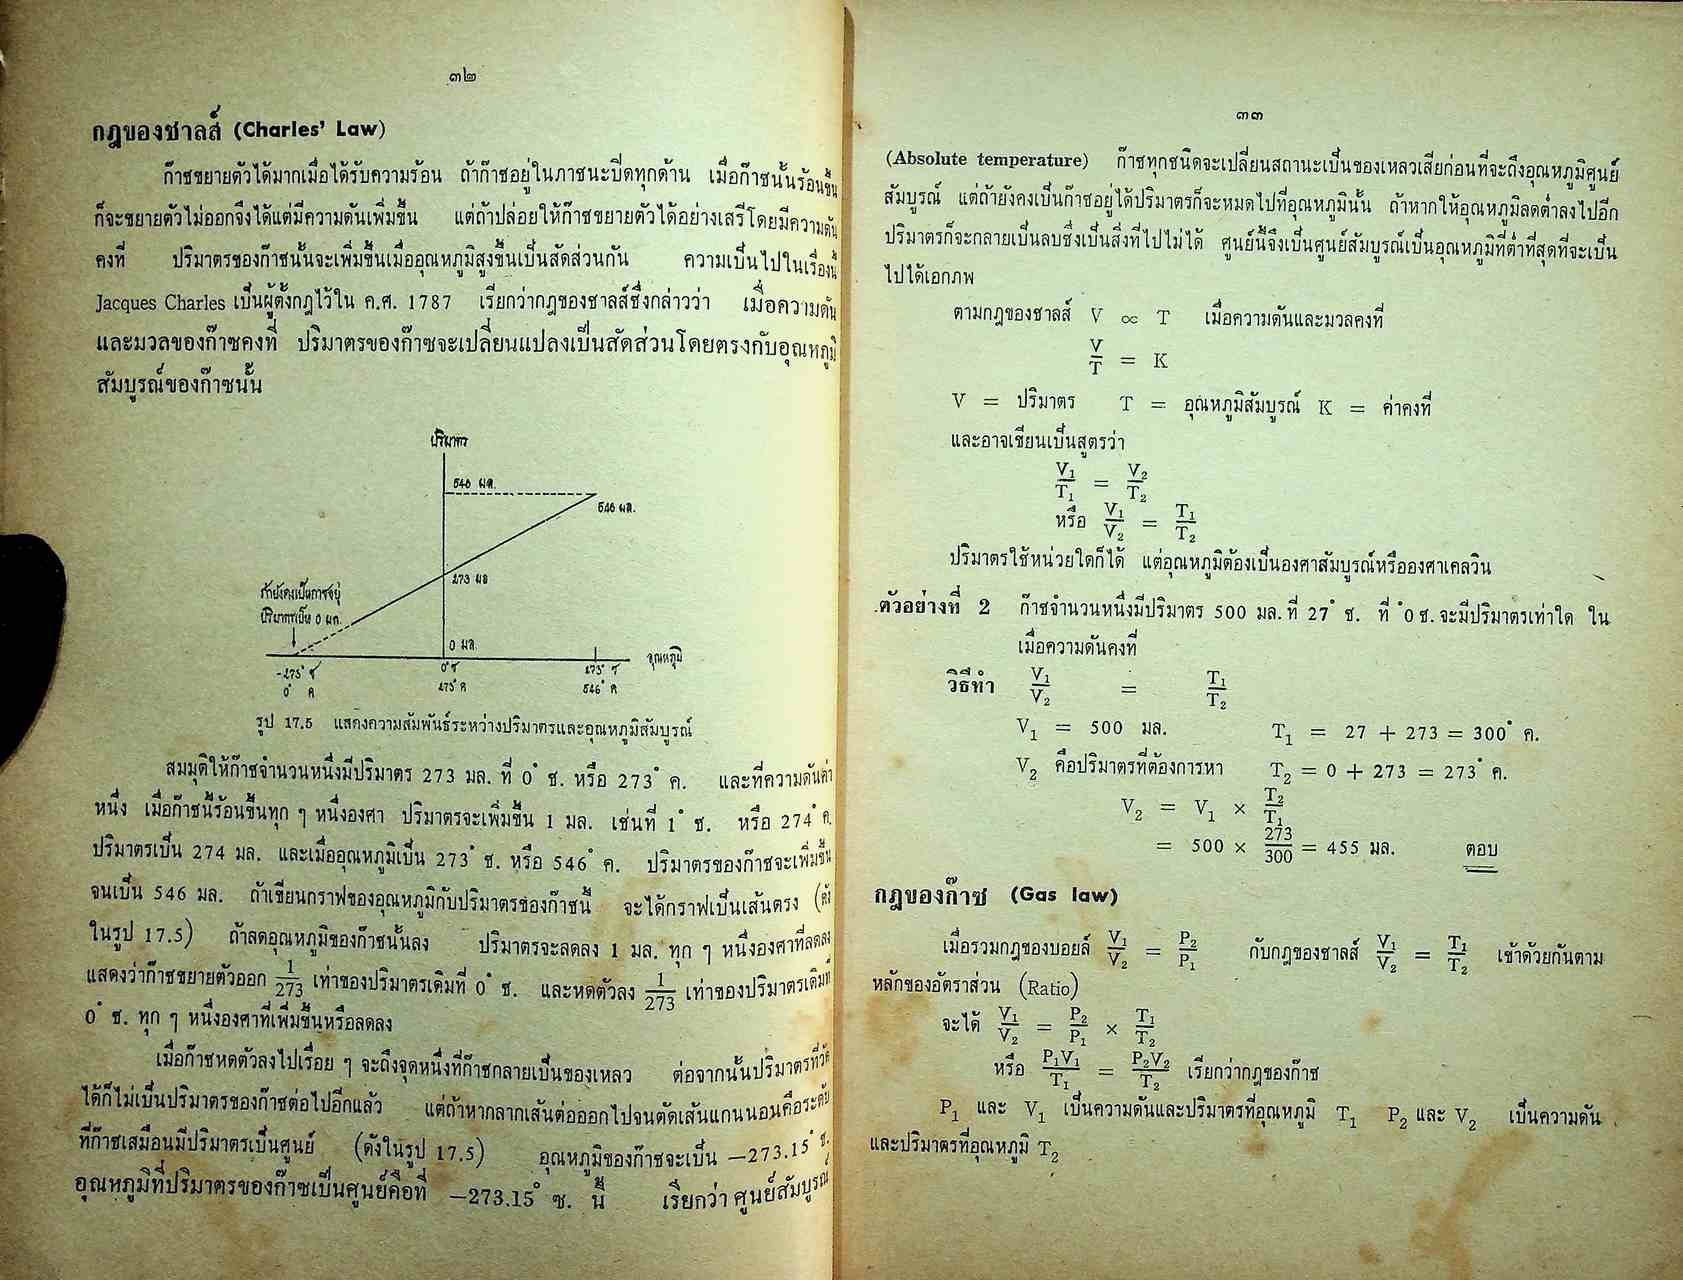 ๓๒
กฎของชาลส์ (Charles' Law)
ก๊าซขยายตัวได้มากเมื่อได้รับความร้อน ถ้าก๊าซอยู่ในภาชนะปิดทุกด้าน เมื่อก๊าซนั้นร้อนขึ้น
ก็จะขยายตัวไม่ออกจึงได้แต่มีความดันเพิ่มขึ้น แต่ถ้าปล่อยให้ก๊าซขยายตัวได้อย่างเสรีโดยมีความดัน
คงที่ ปริมาตรของก๊าซนั้นจะเพิ่มขึ้นเมื่ออุณหภูมิสูงขึ้นเป็นสัดส่วนกัน ความเป็นไปในเรื่องนี้
Jacques Charles เป็นผู้ตั้งกฎไว้ใน ค.ศ. 1787 เรียกว่ากฎของชาลส์ซึ่งกล่าวว่า เมื่อความดัน
และมวลของก๊าซคงที่ ปริมาตรของก๊าซจะเปลี่ยนแปลงเป็นสัดส่วนโดยตรงกับอุณหภูมิ
สัมบูรณ์ของก๊าซนั้น
ปริมาตร
546 มล.
546 มล.
273 มล
ถ้ายังคงเป็นก๊าซอยู่
ปริมาตรเป็น 0 มล.
0 มล.
อุณหภูมิ
-273° ซ 0° ซ 273° ซ
0° ค 273° ค 546° ค
รูป 17.5 แสดงความสัมพันธ์ระหว่างปริมาตรและอุณหภูมิสัมบูรณ์
สมมุติให้ก๊าซจำนวนหนึ่งมีปริมาตร 273 มล. ที่ 0° ซ. หรือ 273° ค. และที่ความดันค่า
หนึ่ง เมื่อก๊าซนี้ร้อนขึ้นทุก ๆ หนึ่งองศา ปริมาตรจะเพิ่มขึ้น 1 มล. เช่นที่ 1° ซ. หรือ 274° ค.
ปริมาตรเป็น 274 มล. และเมื่ออุณหภูมิเป็น 273° ซ. หรือ 546° ค. ปริมาตรของก๊าซจะเพิ่มขึ้น
จนเป็น 546 มล. ถ้าเขียนกราฟของอุณหภูมิกับปริมาตรของก๊าซนี้ จะได้กราฟเป็นเส้นตรง (ดัง
ในรูป 17.5) ถ้าลดอุณหภูมิของก๊าซนั้นลง ปริมาตรจะลดลง 1 มล. ทุก ๆ หนึ่งองศาที่ลดลง
แสดงว่าก๊าซขยายตัวออก 1/273 เท่าของปริมาตรเดิมที่ 0° ซ. และหดตัวลง 1/273 เท่าของปริมาตรเดิมที่
0° ซ. ทุก ๆ หนึ่งองศาที่เพิ่มขึ้นหรือลดลง
เมื่อก๊าซหดตัวลงไปเรื่อย ๆ จะถึงจุดหนึ่งที่ก๊าซกลายเป็นของเหลว ต่อจากนั้นปริมาตรที่วัด
ได้ก็ไม่เป็นปริมาตรของก๊าซต่อไปอีกแล้ว แต่ถ้าหากลากเส้นต่อออกไปจนตัดเส้นแกนนอนคือระดับ
ที่ก๊าซเสมือนมีปริมาตรเป็นศูนย์ (ดังในรูป 17.5) อุณหภูมิของก๊าซจะเป็น –273.15° ซ.
อุณหภูมิที่ปริมาตรของก๊าซเป็นศูนย์คือที่ –273.15° ซ. นี้ เรียกว่า ศูนย์สัมบูรณ์
๓๓
(Absolute temperature) ก๊าซทุกชนิดจะเปลี่ยนสถานะเป็นของเหลวเสียก่อนที่จะถึงอุณหภูมิศูนย์
สัมบูรณ์ แต่ถ้ายังคงเป็นก๊าซอยู่ได้ปริมาตรก็จะหมดไปที่อุณหภูมินั้น ถ้าหากให้อุณหภูมิลดต่ำลงไปอีก
ปริมาตรก็จะกลายเป็นลบซึ่งเป็นสิ่งที่ไปไม่ได้ ศูนย์นี้จึงเป็นศูนย์สัมบูรณ์เป็นอุณหภูมิที่ต่ำที่สุดที่จะเป็น
ไปได้เอกภพ
ตามกฎของชาลส์ V ∝ T เมื่อความดันและมวลคงที่
V/T = K
V = ปริมาตร T = อุณหภูมิสัมบูรณ์ K = ค่าคงที่
และอาจเขียนเป็นสูตรว่า
V₁/T₁ = V₂/T₂
หรือ V₁/V₂ = T₁/T₂
ปริมาตรใช้หน่วยใดก็ได้ แต่อุณหภูมิต้องเป็นองศาสัมบูรณ์หรือองศาเคลวิน
ตัวอย่างที่ 2 ก๊าซจำนวนหนึ่งมีปริมาตร 500 มล. ที่ 27° ซ. ที่ °0 ซ. จะมีปริมาตรเท่าใด ใน
เมื่อความดันคงที่
วิธีทำ V₁/V₂ = T₁/T₂
V₁ = 500 มล. T₁ = 27 + 273 = 300° ค.
V₂ คือปริมาตรที่ต้องการหา T₂ = 0 + 273 = 273° ค.
V₂ = V₁ × T₂/T₁
= 500 × 273/300 = 455 มล. ตอบ
กฎของก๊าซ (Gas law)
เมื่อรวมกฎของบอยล์ V₁/V₂ = P₂/P₁ กับกฎของชาลส์ V₁/V₂ = T₁/T₂ เข้าด้วยกันตาม
หลักของอัตราส่วน (Ratio)
จะได้ V₁/V₂ = P₂/P₁ × T₁/T₂
หรือ P₁V₁/T₁ = P₂V₂/T₂ เรียกว่ากฎของก๊าซ
P₁ และ V₁ เป็นความดันและปริมาตรที่อุณหภูมิ T₁ P₂ และ V₂ เป็นความดัน
และปริมาตรที่อุณหภูมิ T₂